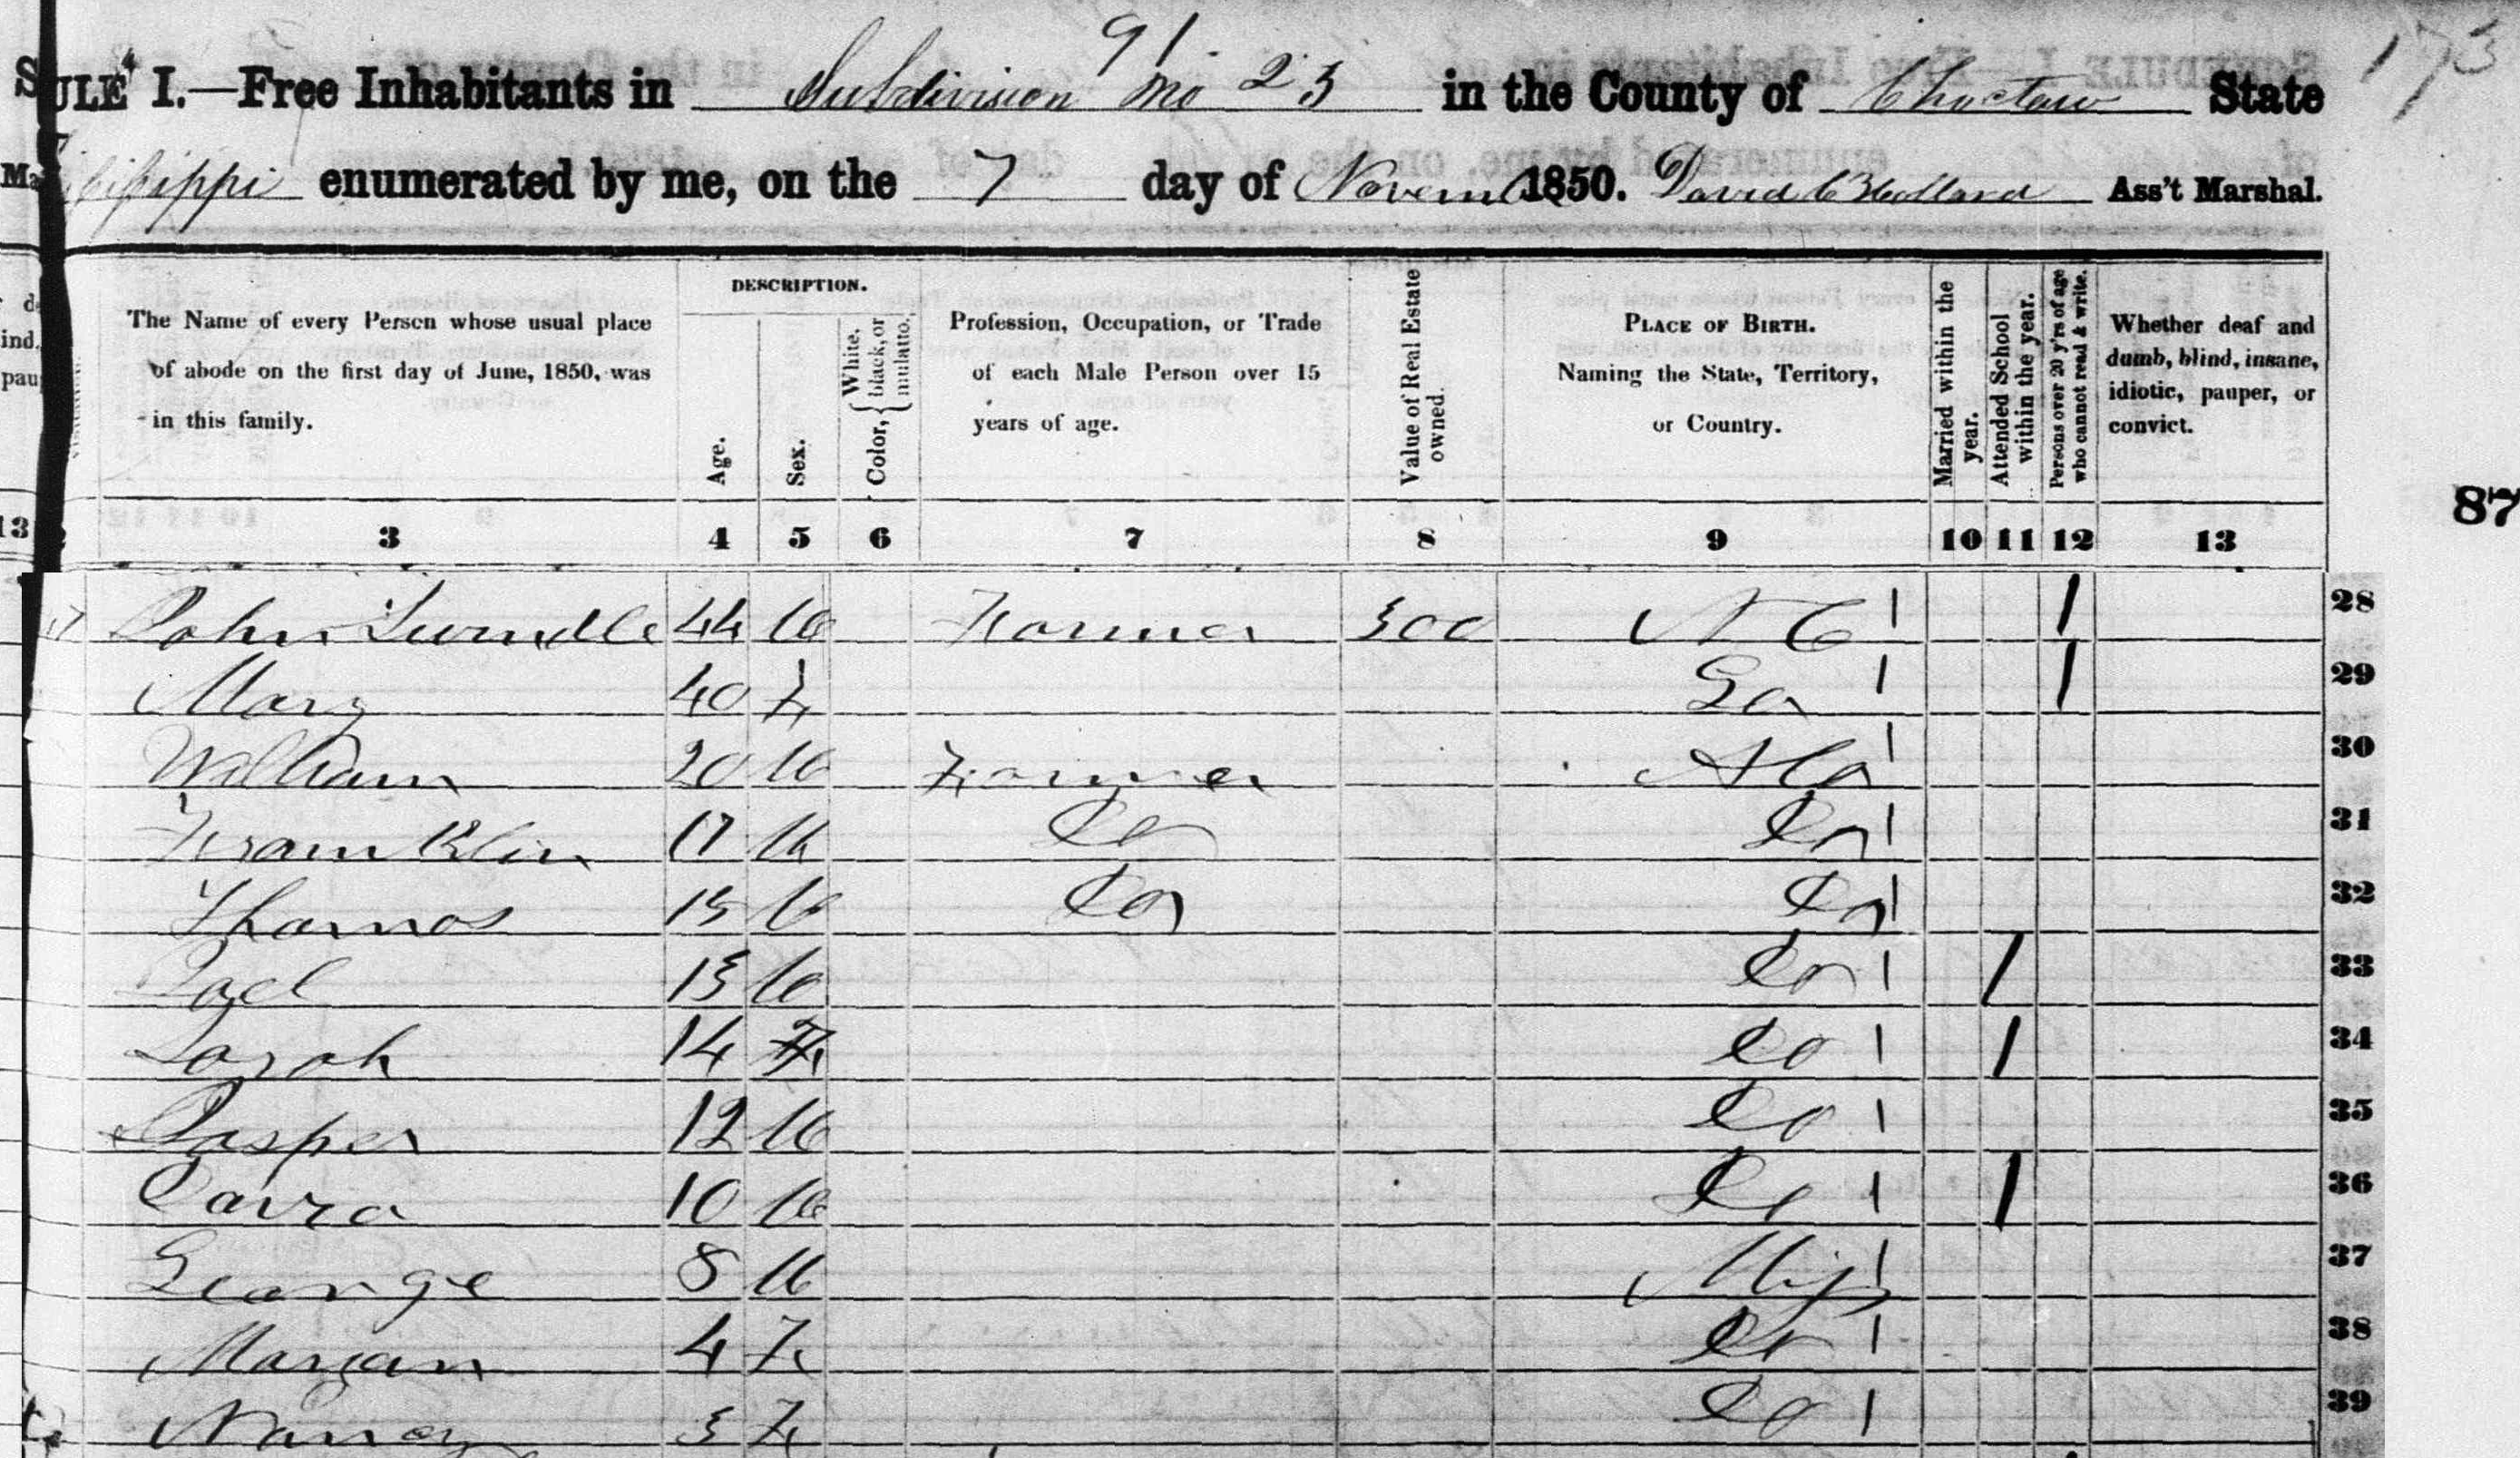 91
173
ULE 4 I.—Free Inhabitants in Subdivision No 23 in the County of Choctaw State
sissippi enumerated by me, on the 7 day of Novem 1850. David C Holland Ass't Marshal.
DESCRIPTION.
The Name of every Person whose usual place
of abode on the first day of June, 1850, was
in this family.
Age.
Sex.
Color, { White, black, or mulatto.
Profession, Occupation, or Trade
of each Male Person over 15
years of age.
Value of Real Estate owned.
PLACE OF BIRTH.
Naming the State, Territory,
or Country.
Married within the year.
Attended School within the year.
Persons over 20 y'rs of age who cannot read & write.
Whether deaf and
dumb, blind, insane,
idiotic, pauper, or
convict.
87
13 3 4 5 6 7 8 9 10 11 12 13
John Swindle 44 M Farmer 300 N C 1 1 28
Mary 40 F Ga 1 1 29
William 20 M Farmer Ala 1 30
Franklin 17 M Do Do 1 31
Thamos 15 M Do Do 1 32
Joel 15 M Do 1 1 33
Sarah 14 F Do 1 1 34
Jasper 12 M Do 1 35
David 10 M Do 1 1 36
George 8 M Miss 1 37
Marian 4 F Do 1 38
Nancy 3 F Do 1 39